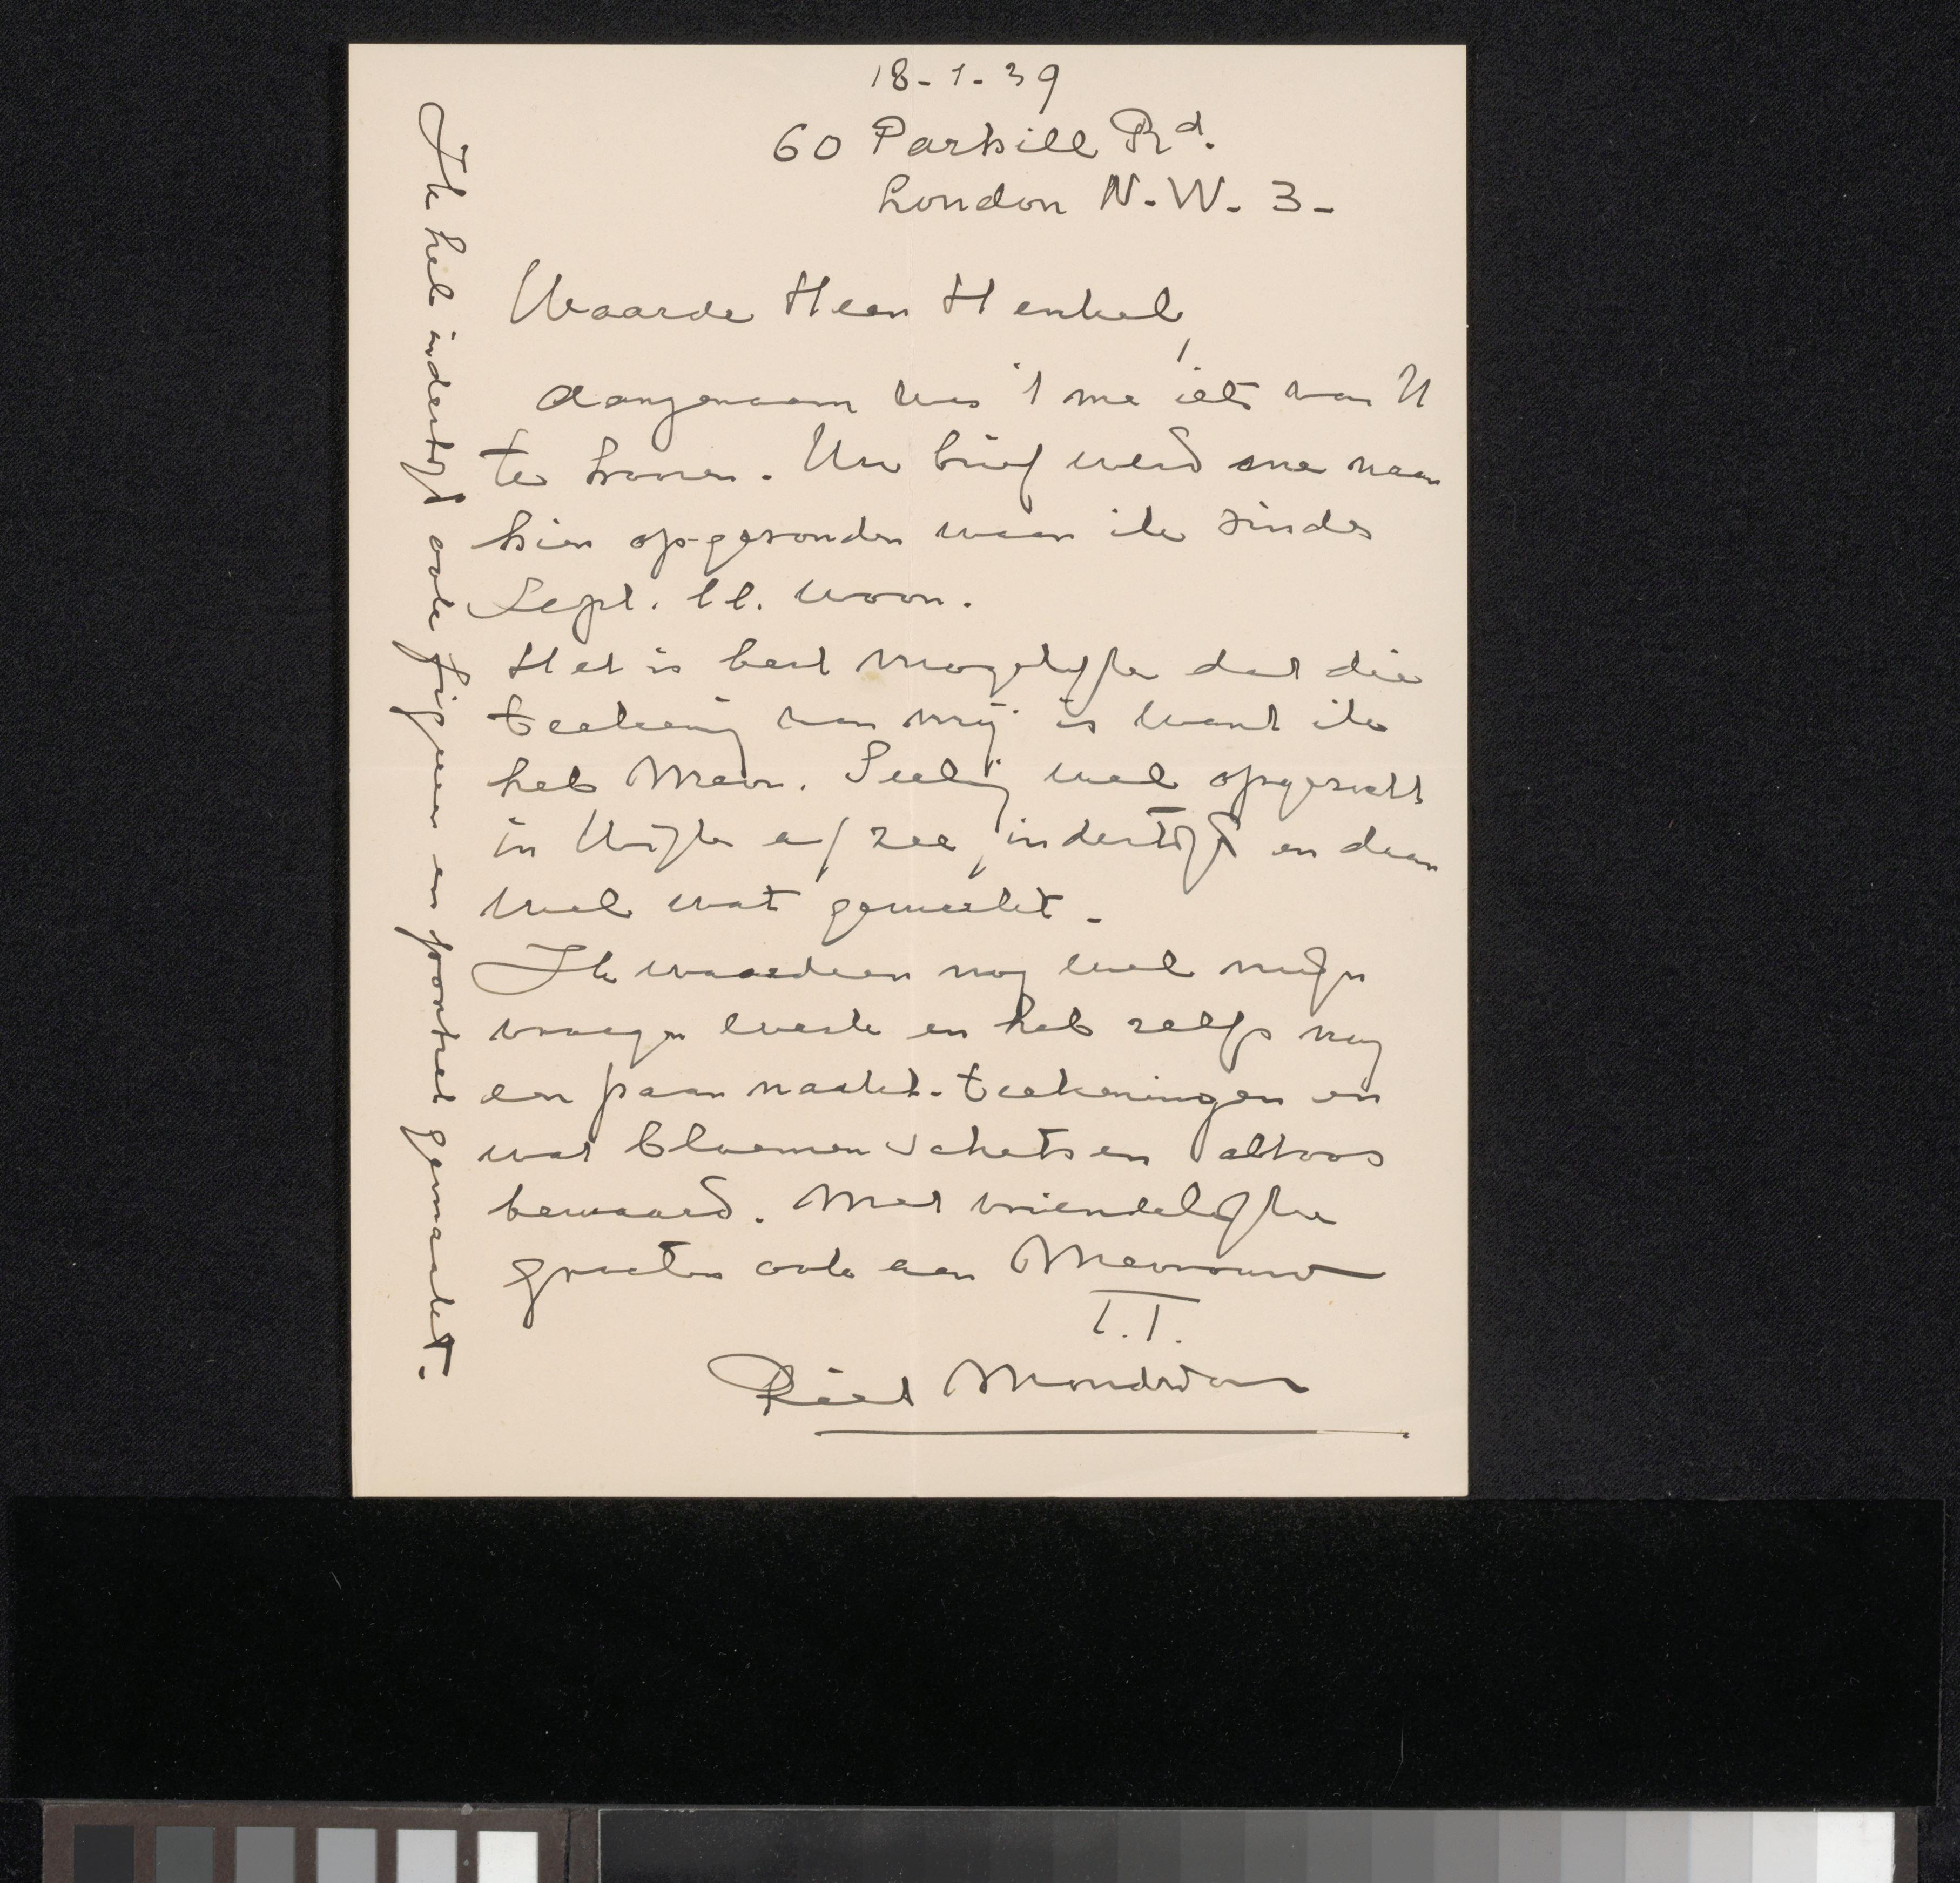 18-1-39
60 Parkhill Rd.
London N.W. 3-
Waarde Heer Henkel,
Aangenaam was 't me iets van U
te hooren. Uw brief werd me naar
hier op-gezonden waar ik sinds
Sept. ll. woon.
Het is best mogelijk dat die
teekening van mij is want ik
heb Mevr. Seelig wel opgezocht
in Wijk a/zee, indertijd en daar
wel wat gewerkt.
Ik waardeer nog wel mijn
vroeger werk en heb zelfs nog
een paar naakt-teekeningen en
wat bloemen schetsen altoos
bewaard. Met vriendelijke
groeten ook aan Mevrouw
T.T.
Piet Mondrian
Ik heb indertijd ook figuren en portret gemaakt.